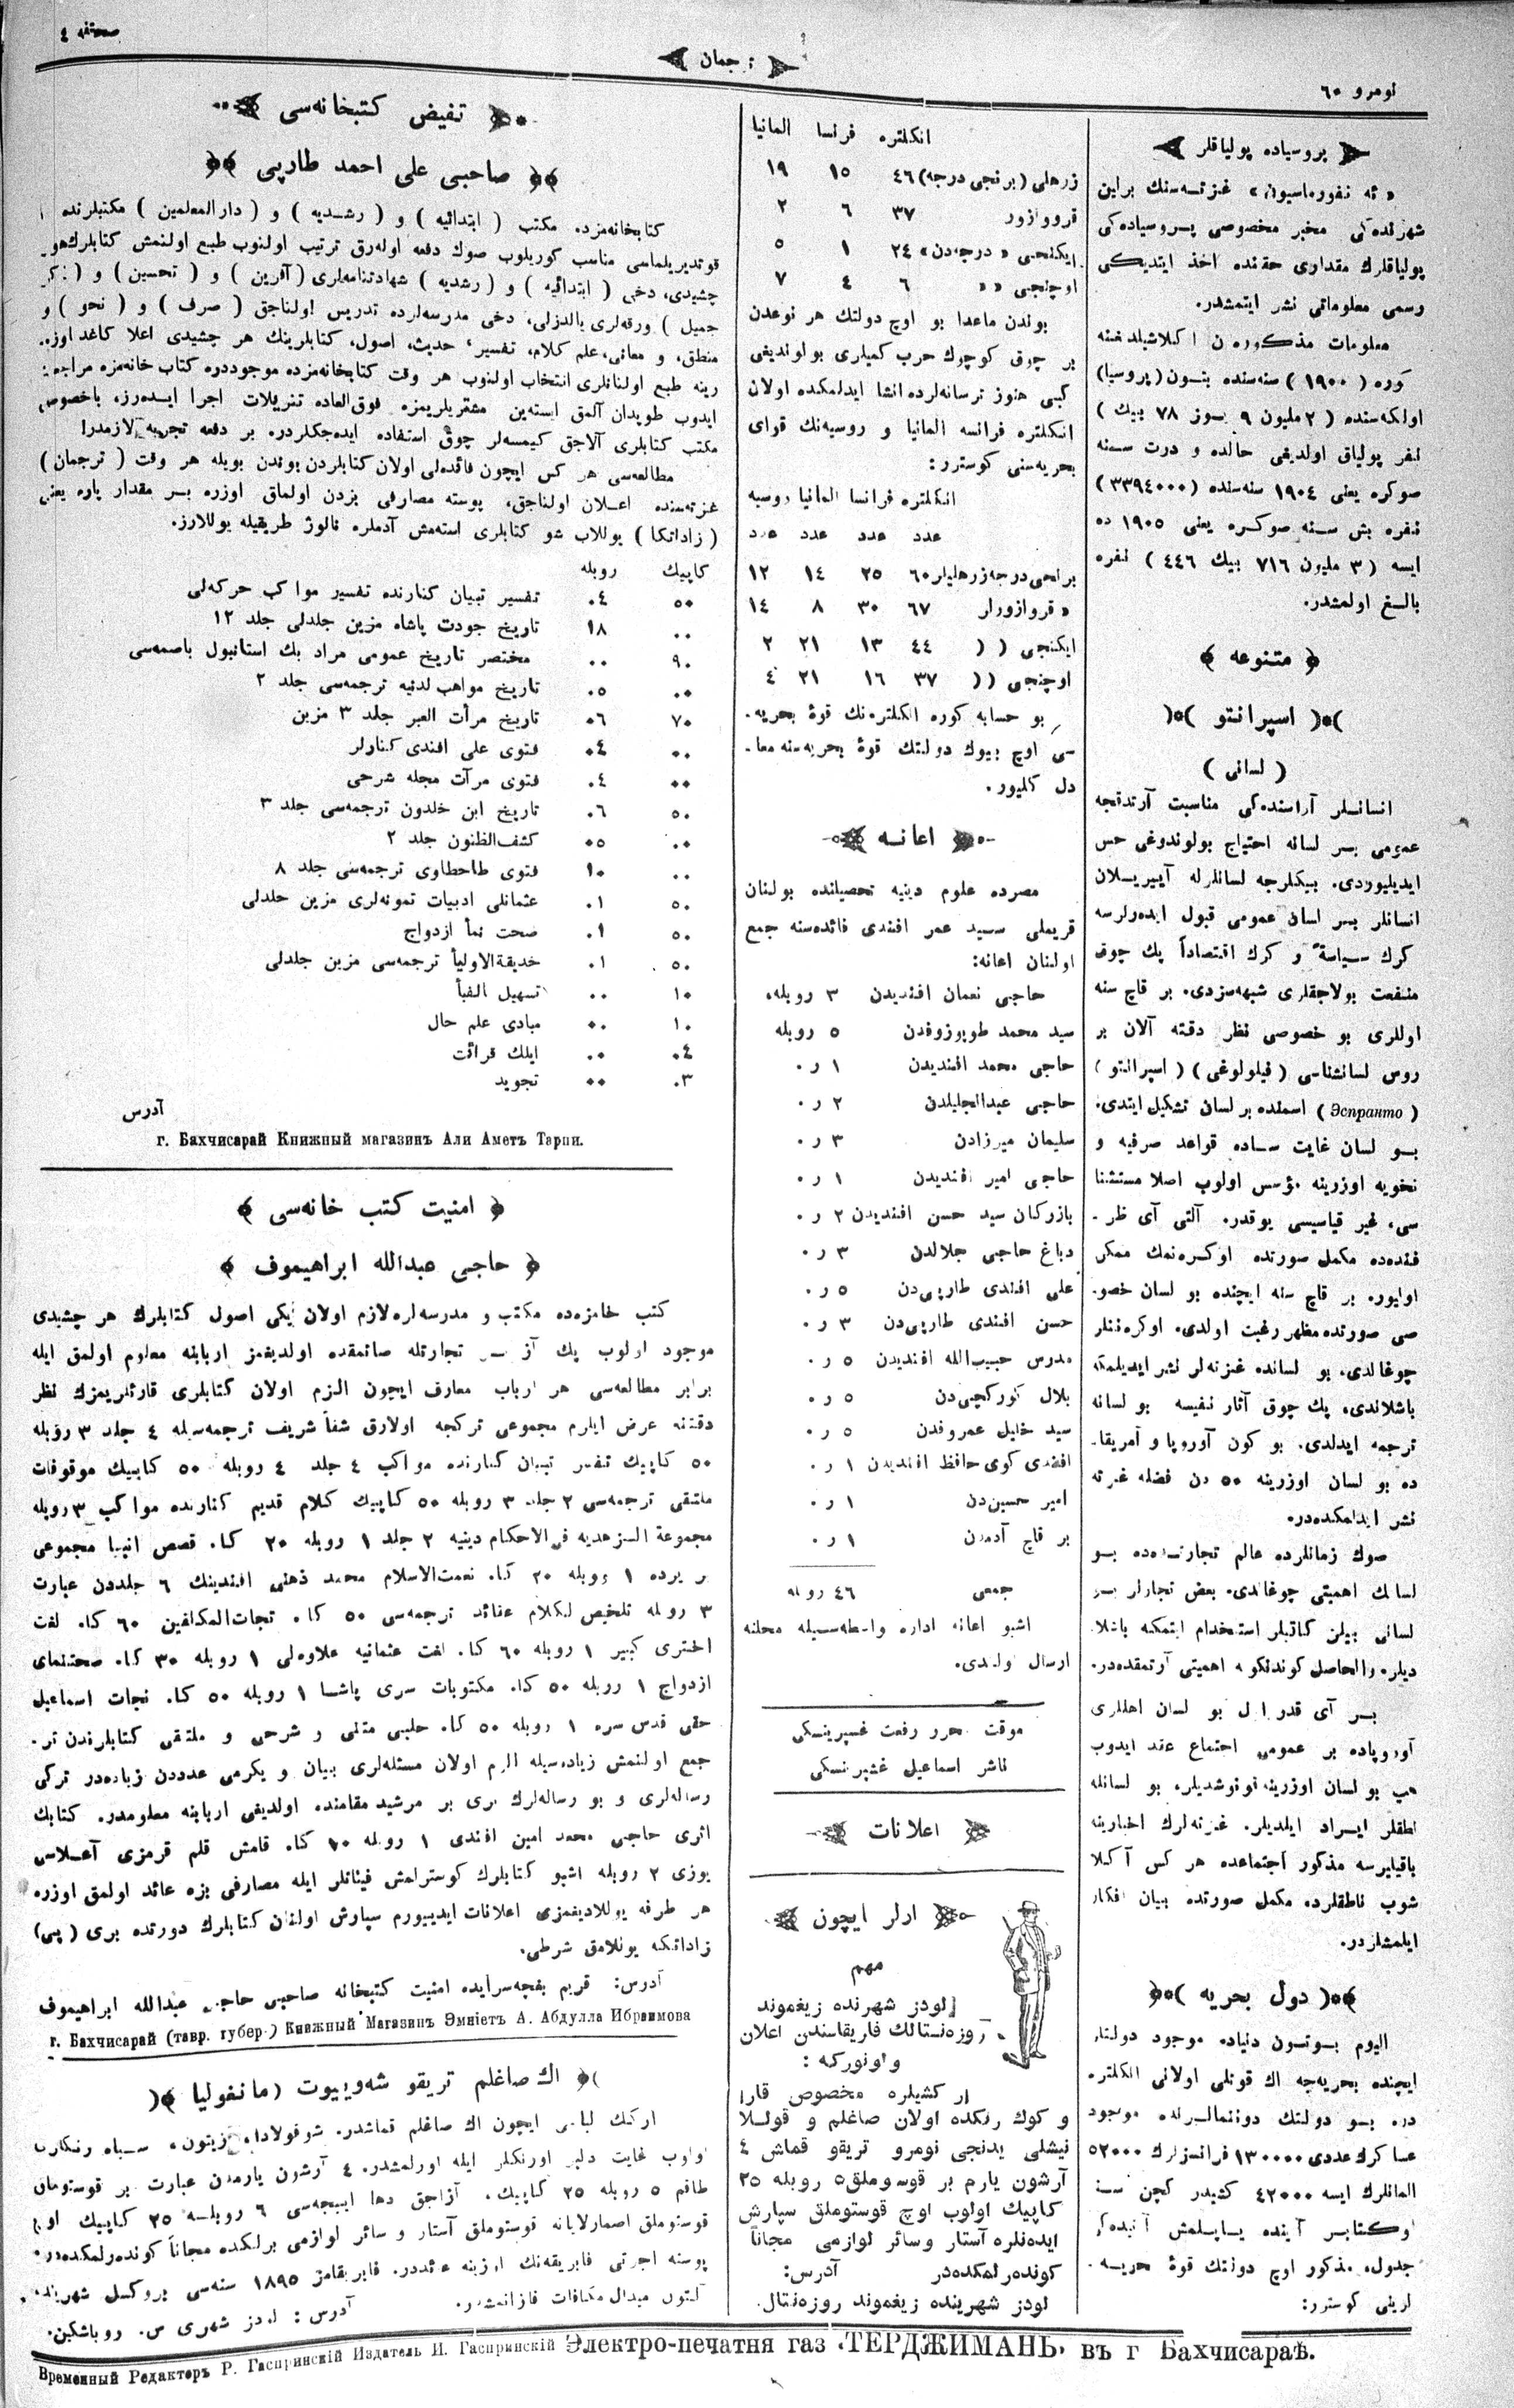 نومرو ٦٠
ترجمان
صحیفه ٤
پروسیاده پولیاقلر
« ئه نفورماسیون » غزته‌سنك برلین
شهرنده‌کی مخبر مخصوصی پروسیاده‌کی
پولیاقلرك مقداری حقنده اخذ ایتدیکی
رسمی معلوماتی نشر ایتمشدر.
معلومات مذکوره‌دن اکلاشیلدیغنه
کوره ( ١٩٠٠ ) سنه‌سنده بتون (پروسیا)
اولکه‌سنده ( ٢ ملیون ٩ یوز ٧٨ بیك )
نفر پولیاق اولدیغی حالده و درت سنه
صوکره یعنی ١٩٠٤ سنه‌سنده (٣٣٩٤٠٠٠)
نفره بش سنه صوکره یعنی ١٩٠٥ ده
ایسه ( ٣ ملیون ٧١٦ بیك ٤٤٦ ) نفره
بالغ اولمشدر.
﴿ متنوعه ﴾
اسپرانتو
( لسانی )
انسانلر آراسنده‌کی مناسبت آرتدقجه
عمومی بر لسانه احتیاج بولوندوغی حس
ایدیلیووردی. بیکلرجه لسانلرله آییریلان
انسانلر بر لسان عمومی قبول ایده‌رلرسه
کرك سیاسة و کرك اقتصاداً پك چوق
منفعت بولاجقلری شبهه‌سزدی. بر قاچ سنه
اوللری بو خصوصی نظر دقته آلان بر
روس لسانشناسی ( فیلولوغی ) ( اسپرانتو )
( Эспранто ) اسمنده بر لسان تشکیل ایتدی.
بو لسان غایت ساده قواعد صرفیه و
نحویه اوزرینه مؤسس اولوب اصلا مستثنا
سی، غیر قیاسیسی یوقدر. آلتی آی ظر-
فنده‌ده مکمل صورتده اوکره‌نمك ممکن
اولیور. بر قاچ سنه ایچنده بو لسان خصو-
صی صورتده مظهر رغبت اولدی. اوکره‌ننلر
چوغالدی، بو لسانده غزته‌لر نشر ایدیلمکه
باشلاندی، پك چوق آثار نفیسه بو لسانه
ترجمه ایدلدی. بو کون آوروپا و آمریقا-
ده بو لسان اوزرینه ٥٠ دن فضله غزته
نشر ایدلمکده‌در.
صوك زمانلرده عالم تجارتده‌ده بو
لسانك اهمیتی چوغالدی. بعض تجارلر بو
لسانی بیلن کاتبلر استخدام ایتمکه باشلا-
دیلر. والحاصل کوندنکونه اهمیتی آرتمقده‌در.
بر آی قدر اول بو لسان اهللری
آوروپاده بر عمومی اجتماع عقد ایدوب
هپ بو لسان اوزرینه قونوشدیلر، بو لسانله
نطقلر ایراد ایلدیلر. غزته‌لرك اخبارینه
باقیلیرسه مذکور اجتماعده هر کس آکلا
شوب ناطقلرده مکمل صورتده بیان افکار
ایلمشلردر.
دول بحریه
الیوم بوتون دنیاده موجود دولتلر
ایچنده بحریه‌جه اك قوتلی اولانی انکلتره
در. بو دولتك دوننمالرنده موجود
عساکرك عددی ١٣٠٠٠٠ فرانسزلرك ٥٢٠٠٠
المانلرك ایسه ٤٢٠٠٠ کشیدر کچن سنه
اوکتابر آینده یاپیلمش آتیده‌کی
جدول، مذکور اوچ دولتك قوۀ بحریه-
لرینی کوسترر:
انکلتره فرانسا المانیا
زرهلی (برنجی درجه) ٤٦ ١٥ ١٩
قرووازور ٣٧ ٦ ٢
ایکنجی « درجه‌دن » ٢٤ ١ ٥
اوچنجی « » ٦ ٤ ٧
بوندن ماعدا بو اوچ دولتك هر نوعدن
بر چوق کوچوك حرب کمیلری بولوندیغی
کبی هنوز ترسانه‌لرده انشا ایدلمکده اولان
انکلتره فرانسه المانیا و روسیه‌نك قوای
بحریه‌سنی کوسترر:
انکلتره فرانسا المانیا روسیه
عدد عدد عدد عدد
برنجی درجه زرهلیلر ٦٠ ٢٥ ١٤ ١٢
« قروازورلر ٦٧ ٣٠ ٨ ١٤
ایکنجی ( ( ٤٤ ١٣ ٢١ ٢
اوچنجی ( ( ٣٧ ١٦ ٢١ ٤
بو حسابه کوره انکلتره‌نك قوۀ بحریه-
سی اوچ بیوك دولتك قوۀ بحریه‌سنه معا-
دل کلیور.
اعانه
مصرده علوم دینیه تحصیلنده بولنان
قریملی سید عمر افندی فائده‌سنه جمع
اولنان اعانه:
حاجی نعمان افندیدن ٣ روبله،
سید محمد طوبوزوفدن ٥ روبله
حاجی محمد افندیدن ١ ر.
حاجی عبدالجلیلدن ٢ ر.
سلیمان میرزادن ٣ ر.
حاجی امیر افندیدن ١ ر.
بازرکان سید حسن افندیدن ٢ ر.
دباغ حاجی جلالدن ٣ ر.
علی افندی طارپی‌دن ٥ ر.
حسن افندی طارپی‌دن ٣ ر.
مدرس حبیب‌الله افندیدن ٥ ر.
بلال کورکچی‌دن ٥ ر.
سید خلیل عمروفدن ٥ ر.
افندی کوی حافظ افندیدن ١ ر.
امیر حسین‌دن ١ ر.
بر قاچ آدمدن ١ ر.
جمعی ٤٦ روبله
اشبو اعانه اداره واسطه‌سیله محلنه
ارسال اولندی.
موقت محرر رفعت غسپرینسکی
ناشر اسماعیل غسپرینسکی
اعلانات
ارلر ایچون
مهم
لودز شهرنده زیغموند
روزه‌نتالك فابریقاسندن اعلان
اونورکه :
ار کشیلره مخصوص قارا
و کوك رنکده اولان صاغلم و قوللا
نیشلی یدنجی نومرو تریقو قماش ٤
آرشون یارم بر قوستوملق ٥ روبله ٢٥
کاپیك اولوب اوچ قوستوملق سپارش
ایده‌نلره آستار وسائر لوازمی مجاناً
کوندرلمکده‌در آدرس:
لودز شهرینده زیغموند روزه‌نتال.
تفیض کتبخانه‌سی
صاحبی علی احمد طارپی
کتابخانه‌مزده مکتب ( ابتدائیه ) و ( رشدیه ) و ( دارالمعلمین ) مکتبلرنده ا
قوتدیریلماسی مناسب کوریلوب صوك دفعه اوله‌رق ترتیب اولنوب طبع اولنمش کتابلرك هر
چشیدی، دخی ( ابتدائیه ) و ( رشدیه ) شهادتنامه‌لری ( آفرین ) و ( تحسین ) و ( ذکر
جمیل ) ورقه‌لری یالدزلی، دخی مدرسه‌لرده تدریس اولناجق ( صرف ) و ( نحو ) و
منطق، و معانی، علم کلام، تفسیر، حدیث، اصول، کتابلرینك هر چشیدی اعلا کاغد اوز-
رینه طبع اولنانلری انتخاب اولنوب هر وقت کتابخانه‌مزده موجوددره کتاب خانه‌مزه مراجعت
ایدوب طویدان آلمق ایسته‌ین مشتریلریمزه فوق‌العاده تنزیلات اجرا ایده‌رز، باخصوص
مکتب کتابلری آلاجق کیمسه‌لر چوق استفاده ایده‌جکلردر. بر دفعه تجربه لازمدر!
مطالعه‌سی هر کس ایچون فائده‌لی اولان کتابلردن بوندن بویله هر وقت ( ترجمان )
غزته‌سنده اعلان اولناجق، پوسته مصارفی بزدن اولماق اوزره بر مقدار پاره یعنی
( زاداتکا ) یوللاب شو کتابلری استه‌مش آدملره نالوژ طریقیله یوللارز.
کاپیك روبله
٥٠ ٠٤ تفسیر تبیان کنارنده تفسیر مواکب حرکه‌لی
٠٠ ١٨ تاریخ جودت پاشاه مزین جلدلی جلد ١٢
٩٠ ٠٠ مختصر تاریخ عمومی مراد بك استانبول باصمه‌سی
٠٠ ٠٥ تاریخ مواهب لدنیه ترجمه‌سی جلد ٢
٧٠ ٠٦ تاریخ مرآت العبر جلد ٣ مزین
٠٠ ٠٤ فتوی علی افندی کنارلر
٠٠ ٠٤ فتوی مرآت مجله شرحی
٥٠ ٠٦ تاریخ ابن خلدون ترجمه‌سی جلد ٣
٠٠ ٠٥ کشف‌الظنون جلد ٢
٠٠ ١٠ فتوی طاحطاوی ترجمه‌سی جلد ٨
٥٠ ٠١ عثمانلی ادبیات نمونه‌لری مزین جلدلی
٥٠ ٠١ صحت نمأ ازدواج
٥٠ ٠١ حدیقة‌الاولیأ ترجمه‌سی مزین جلدلی
١٠ ٠٠ تسهیل الفبأ
١٠ ٠٠ مبادی علم حال
٠٤ ٠٠ ایلك قرائت
٠٣ ٠٠ تجوید
آدرس
г. Бахчисарай Книжный магазинъ Али Аметъ Тарпи.
﴿ امنیت کتب خانه‌سی ﴾
﴿ حاجی عبدالله ابراهیموف ﴾
کتب خانمزده مکتب و مدرسه‌لره لازم اولان یکی اصول کتابلرك هر چشیدی
موجود اولوب پك آز تجارتله صاتمقده اولدیغمز اربابنه معلوم اولمق ایله
برابر مطالعه‌سی هر ارباب معارف ایچون الزم اولان کتابلری قارئلریمزك نظر
دقتنه عرض ایلرم مجموعی ترکجه اولارق شفأ شریف ترجمه‌سیله ٤ جلد ٣ روبله
٥٠ کاپیك تفسیر تبیان کنارنده مواکب ٤ جلد ٤ روبله ٥٠ کاپیك موقوفات
ملتقی ترجمه‌سی ٢ جلد ٣ روبله ٥٠ کاپیك کلام قدیم کنارنده مواکب ٣ روبله
مجموعة الزهدیه فی الاحکام دینیه ٢ جلد ١ روبله ٢٠ کا. قصص انبیا مجموعی
بر یرده ١ روبله ٢٠ کا. نعمت‌الاسلام محمد ذهنی افندینك ٦ جلددن عبارت
٣ روبله تلخیص لکلام عقائد ترجمه‌سی ٥٠ کا. نجات‌المکلفین ٦٠ کا. لغت
اختری کبیر ١ روبله ٦٠ کا. لغت عثمانیه علاوه‌لی ١ روبله ٣٠ کا. صحتنمای
ازدواج ١ روبله ٥٠ کا. مکتوبات سری پاشا ١ روبله ٥٠ کا. نجات اسماعیل
حقی قدس سره ١ روبله ٥٠ کا. حلیبی متنلی و شرحی و ملتقی کتابلرندن تر-
جمع اولنمش زیاده‌سیله الزم اولان مسئله‌لری بیان و یکرمی عدددن زیاده‌در ترکی
رساله‌لری و بو رساله‌لرك بری بر مرشید مقامنده اولدیغی اربابنه معلومدر. کتابك
اثری حاجی محمد امین افندی ١ روبله ١٠ کا. قامش قلم قرمزی آعلاسی
یوزی ٢ روبله اشبو کتابلرك کوسترلمش فیئاتلر ایله مصارفی بزه عائد اولمق اوزره
هر طرفه یوللادیغمزی اعلانات ایدییورم سپارش اولنان کتابلرك دورتده بری ( پی )
زاداتکه یوللامق شرطی.
آدرس: قریم بغچه‌سرایده امنیت کتبخانه صاحبی حاجی عبدالله ابراهیموف
г. Бахчисарай (тавр. губер.) Книжный Магазинъ Эмніетъ А. Абдулла Ибраимова
اك صاغلم تریقو شه‌وییوت ( مانغولیا )
ارکك لباسی ایچون اك صاغلم قماشدر. شوقولادا، زیتون، سیاه رنکلری
اولوب غایت دلبر اورنکلر ایله اورلمشدر. ٤ آرشون یارمدن عبارت بر قوستوملق
طاقم ٥ روبله ٢٥ کاپیك، آزاجق دها اییجه‌سی ٦ روبله ٢٥ کاپیك اوچ
قوستوملق اصمارلایانه قوستوملق آستار و سائر لوازمی برلکده مجاناً کوندرلمکده‌در.
پوسته اجرتی فابریقه‌نك اوزینه عائددر. فابریقامز ١٨٩٥ سنه‌سی بروکسل شهرنده
آلتون میدال مکافات قازانمشدر. آدرس: لودز شهری س. روباشکین.
Временный Редакторъ Р. Гаспринскій Издатель И. Гаспринскій Электро-печатня газ. «ТЕРДЖИМАНЪ» въ г Бахчисараѣ.